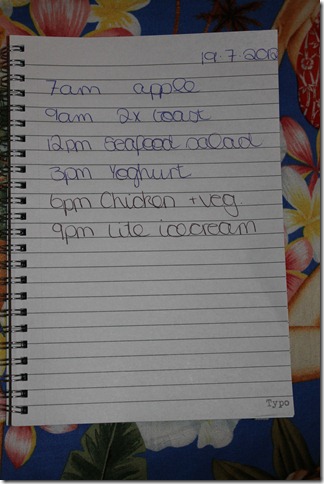 19.7.2012
7am apple
9am 2x toast
12pm seafood salad
3pm Yoghurt
6pm Chicken + veg.
9pm Lite icecream
Typo